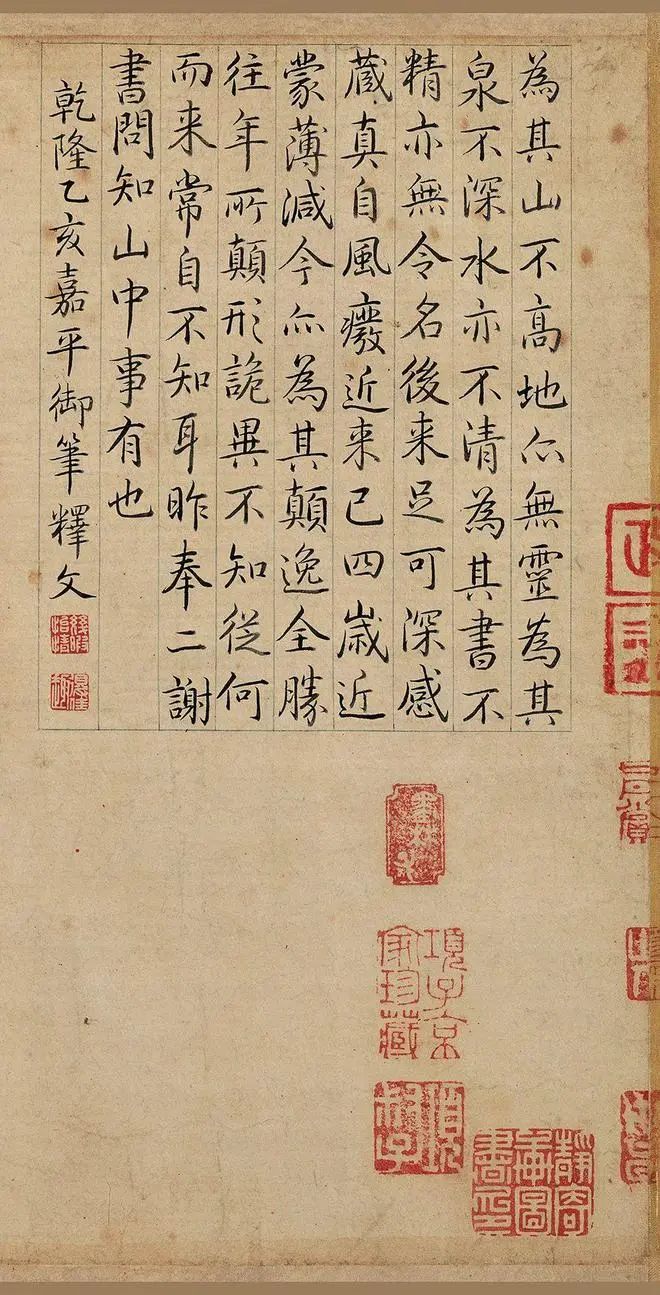 為其山不高地亦無靈為其
泉不深水亦不清為其書不
精亦無令名後来足可深感
藏真自風癈近来已四歲近
蒙薄減今亦為其顛逸全勝
往年所顛形詭異不知從何
而来常自不知耳昨奉二謝
書問知山中事有也
乾隆乙亥嘉平御筆釋文
幾暇怡情
得佳趣
項子京家珍藏